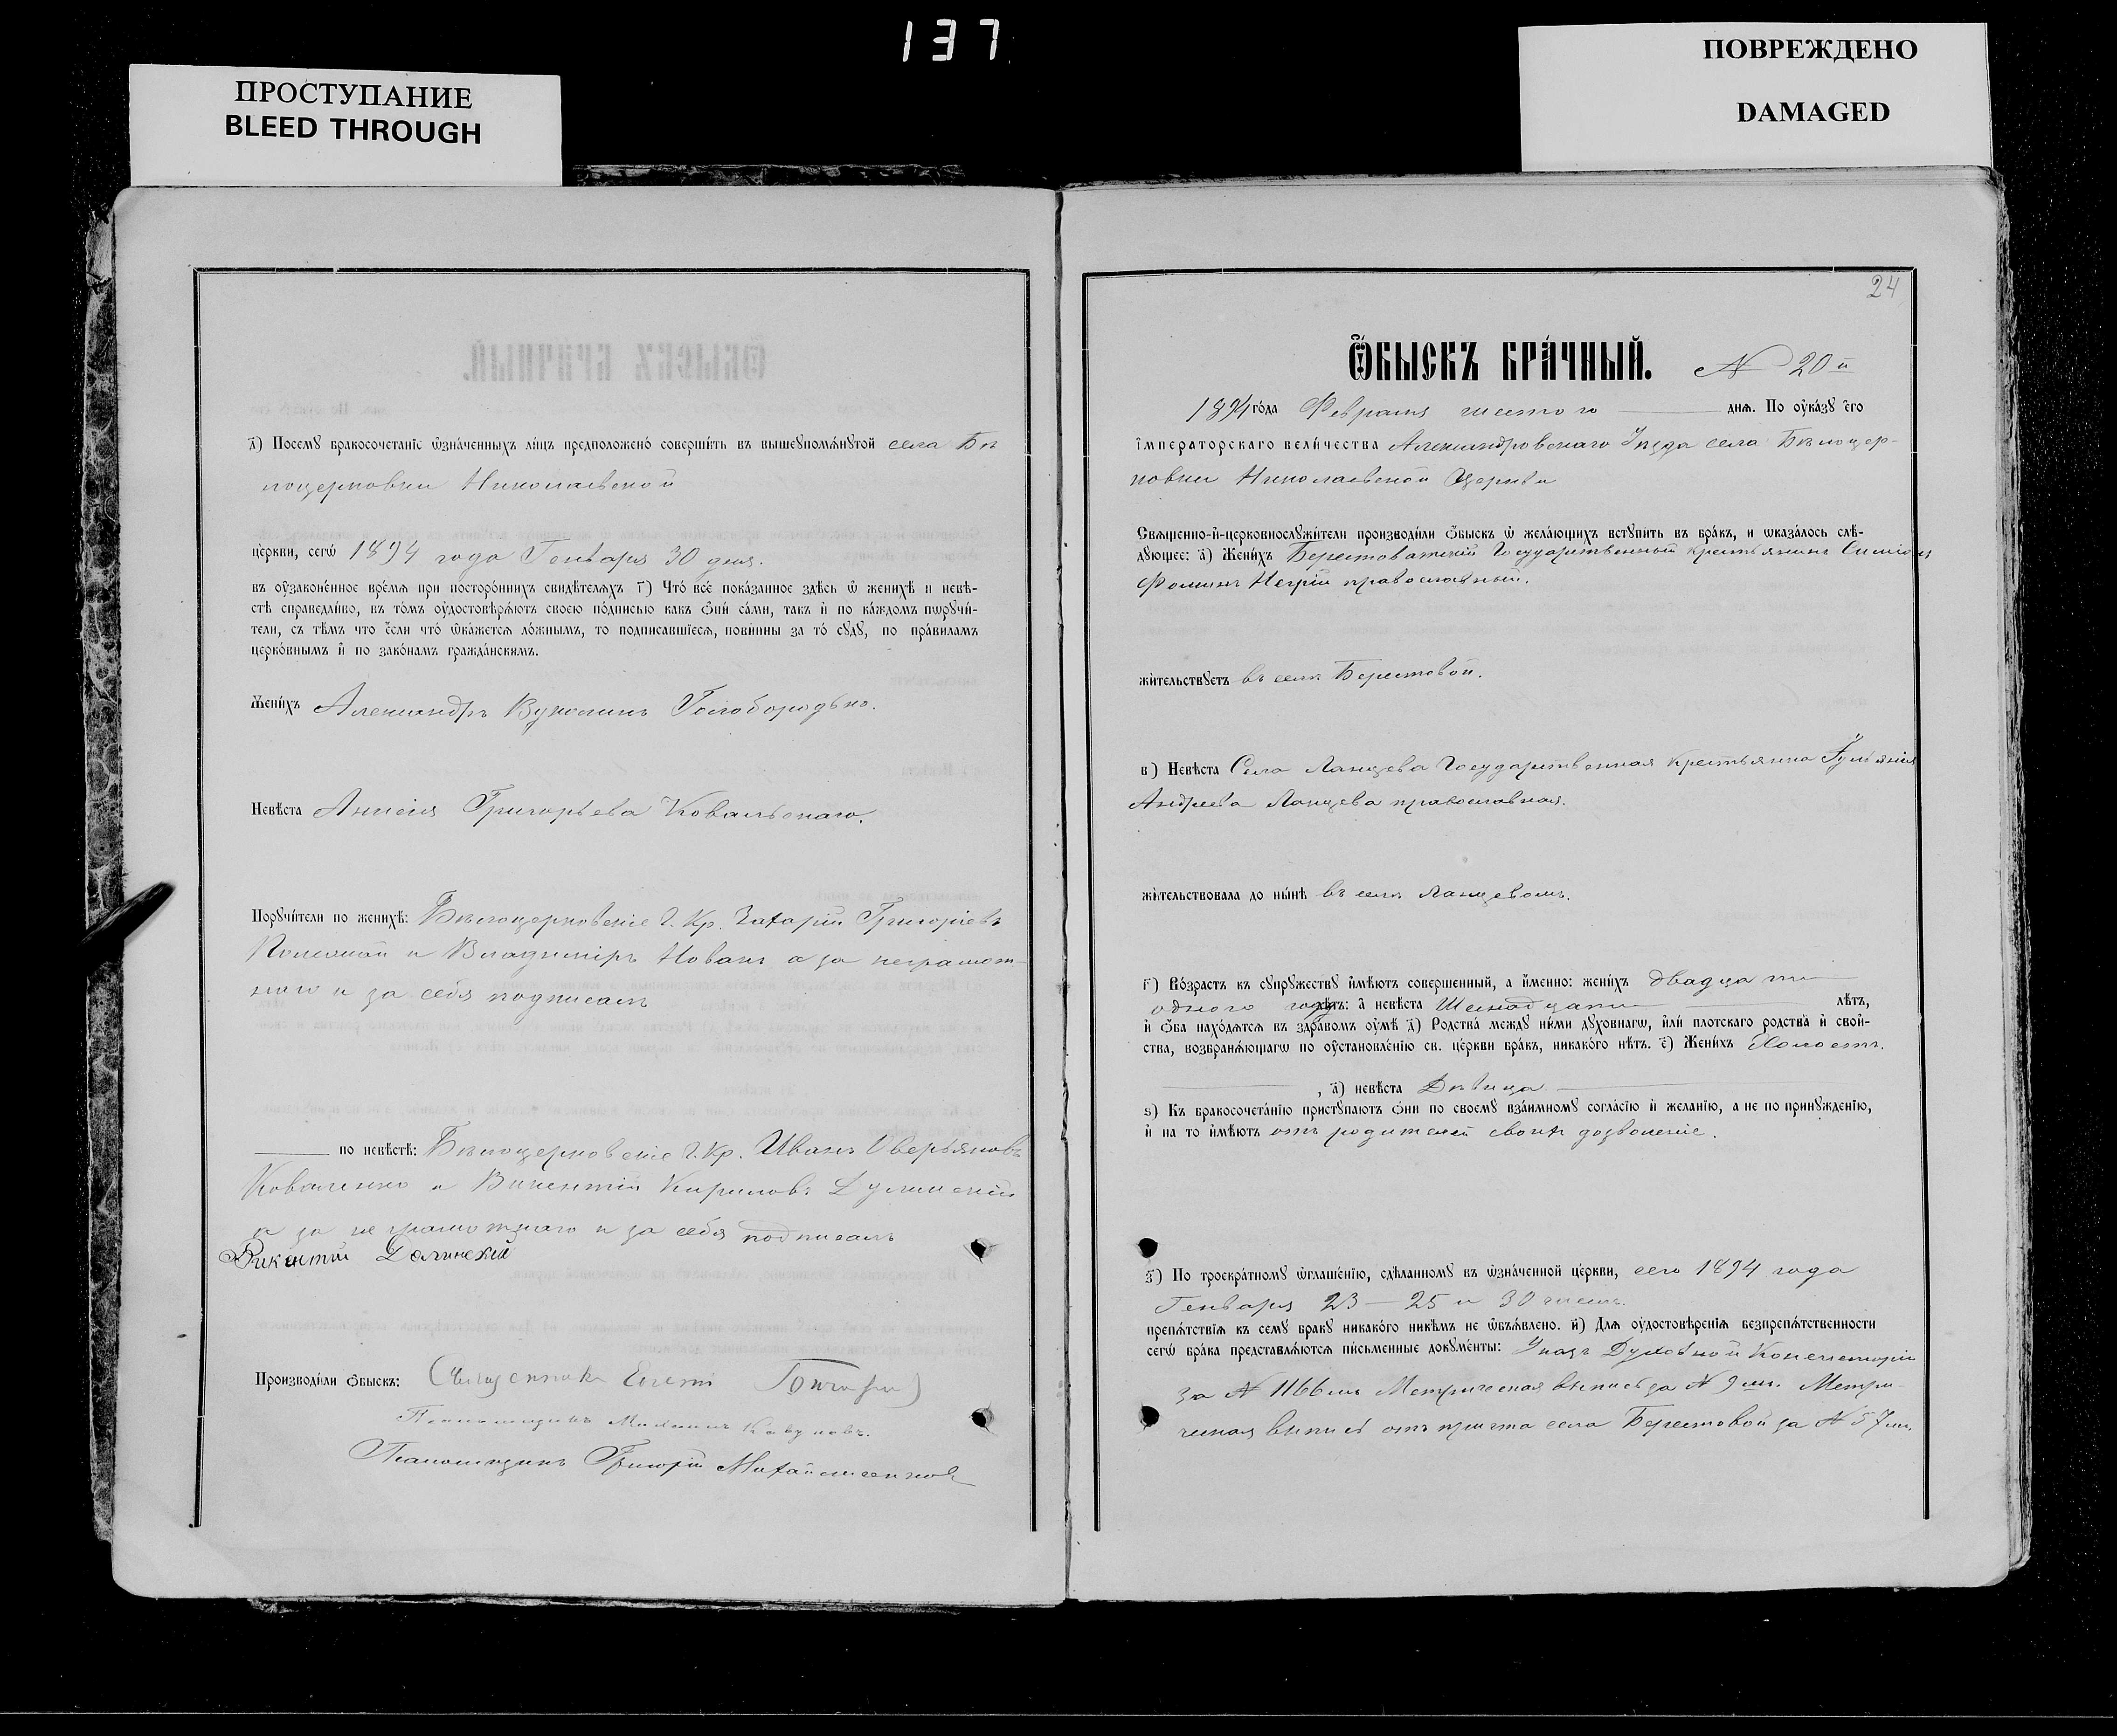 137
ПРОСТУПАНИЕ
BLEED THROUGH
ПОВРЕЖДЕНО
DAMAGED
д) Посемꙋ бракосочетаніе ѡзначенныхъ лицъ предположено совершить въ вышеꙋпомѧнꙋтой села Бѣ
лоцерковки Николаевской
церкви, сегѡ 1894 года Генваря 30 дня.
въ оузаконенное время при постороннихъ свидѣтеляхъ г) Что все показанное здѣсь ѡ женихѣ и невѣ-
стѣ справедливо, въ томъ оудостовѣряютъ своею подписью какъ ѻни сами, такъ и по каждомъ порꙋчи-
тели, съ тѣмъ что если что ѡкажется ложнымъ, то подписавшіеся, повинны за то сꙋдꙋ, по правиламъ
церковнымъ и по законамъ гражданскимъ.
Женихъ Александръ Вуколинъ Голобородько.
Невѣста Анисія Григорьева Ковальскаго.
Порꙋчители по женихѣ: Бѣлоцерковскіе Г. Кр. Захарій Григоріевъ
и Владиміръ Новакъ а за неграмот-
наго и за себя подписалъ
по невѣстѣ: Бѣлоцерковскіе Г. Кр. Иванъ Оверьяновъ
Коваленко и Викентій Кириловъ Долинскій
а за неграмотнаго и за себя подписалъ
Викентий Долинский
Производили ѻбыскъ: Священникъ
Псаломщикъ
Псаломщикъ Григорій
24
Ѻбыскъ брачный. № 20й
1894 года Февраля шестого дня. По оуказꙋ его
императорскаго величества Александровскаго Уѣзда села Бѣлоцер-
ковки Николаевской Церкви
Священно-и-церковнослꙋжители производили ѻбыскъ ѡ желающихъ встꙋпить въ бракъ, и ѡказалось слѣ-
дꙋющее: а) Женихъ Берестоватскій Государственный крестьянинъ Симеонъ
Фоминъ Негрій православный.
жительствꙋетъ въ селѣ Берестовой.
в) Невѣста Села Ланцева Государственная крестьянка Іуліанія
Андреева Ланцева православная.
жительствовала до нынѣ въ селѣ Ланцевомъ.
г) Возрастъ къ сꙋпрꙋжествꙋ имѣютъ совершенный, а именно: женихъ двадцати
одного года: а невѣста Шеснадцати лѣтъ,
и ѻба находятся въ здравомъ оумѣ д) Родства междꙋ ними дꙋховнагѡ, или плотскаго родства и свой-
ства, возбраняющагѡ по оустановленію св. церкви бракъ, никакого нѣтъ. е) Женихъ Холостъ.
, а) невѣста Дѣвица
ѕ) Къ бракосочетанію пристꙋпаютъ ѻни по своемꙋ взаимномꙋ согласію и желанію, а не по принꙋжденію,
и на то имѣютъ отъ родителей своихъ дозволеніе.
з) По троекратномꙋ ѡглашенію, сдѣланномꙋ въ ѡзначенной церкви, сего 1894 года
Генваря 23 — 25 и 30 чиселъ.
препятствія къ семꙋ бракꙋ никакого никѣмъ не ѡбъявлено. и) Для оудостовѣренія безпрепятственности
сегѡ брака представляются письменные докꙋменты: Указъ Духовной Консисторіи
за № 1166мъ Метрическая выпись за № 9мъ. Метри-
ческая выпись отъ причта села Берестовой за № 57мъ.